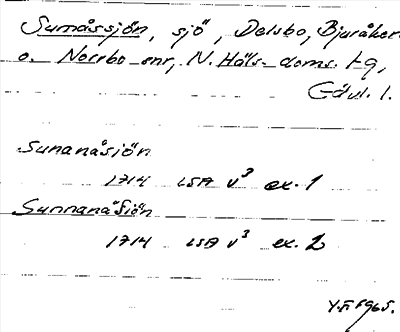 Sunnåssjön, sjö, Delsbo, Bjuråker
o. Norrbo snr, N. Häls. doms. tg,
Gävl. l.
Sunanåsjön
1714 LSA V³ ex. 1
Sunnanåsjön
1714 LSA V³ ex. 2
1965.